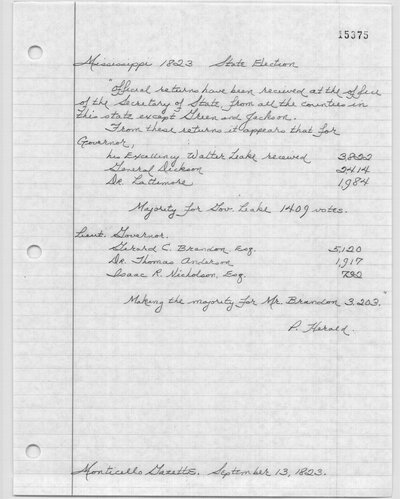 15375
Mississippi 1823 State Election
"Official returns have been received at the office
of the Secretary of State, from all the counties in
this state except Green and Jackson.
From these returns it appears that for
Governor,
his Excellency Walter Leake received 3,822
General Dickson 2414
Dr. Lattimore 1,984
Majority for Gov. Leake 1409 votes.
Lieut. Governor.
Gerard C. Brandon, Esq. 5,120
Dr. Thomas Anderson 1,917
Isaac R. Nicholson, Esq.
Making the majority for Mr. Brandon 3.203."
P. Herald.
Monticello Gazette. September 13, 1823.